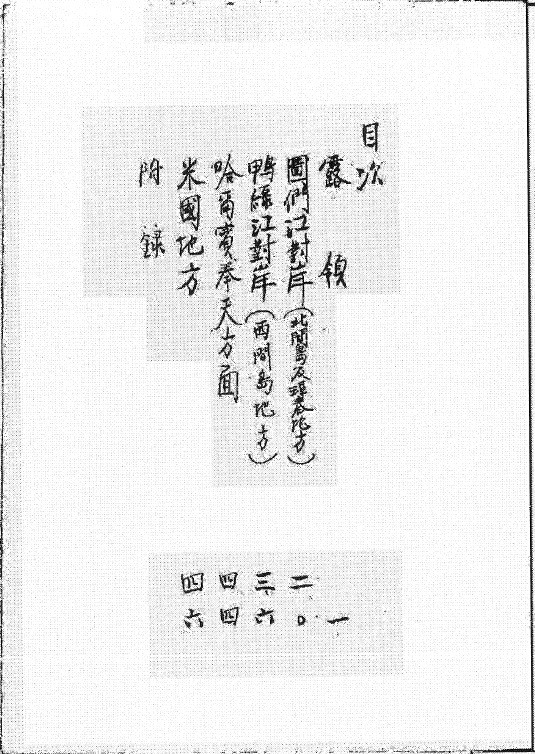 目次
露領 一
圖們江對岸(北間島及琿春地方) 二〇
鴨綠江對岸(西間島地方) 三六
哈爾賓奉天方面 四四
米國地方 四六
附錄